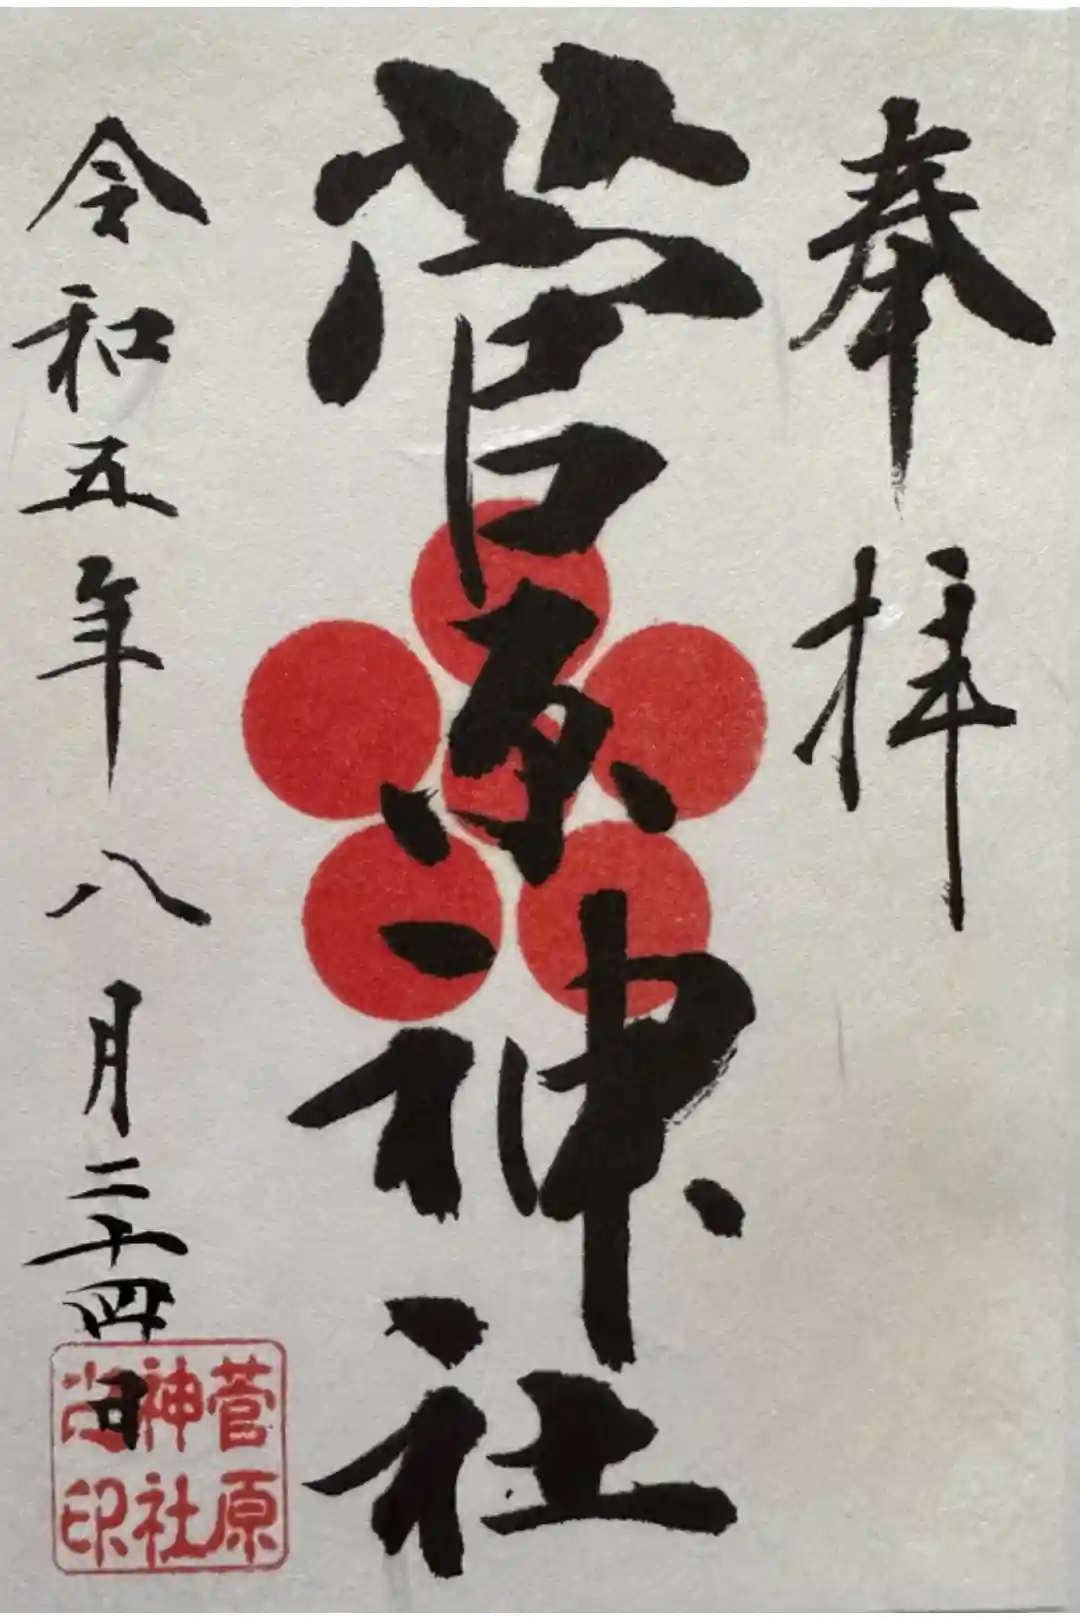 奉拝
菅原神社
令和五年八月二十四日
菅原
神社
印